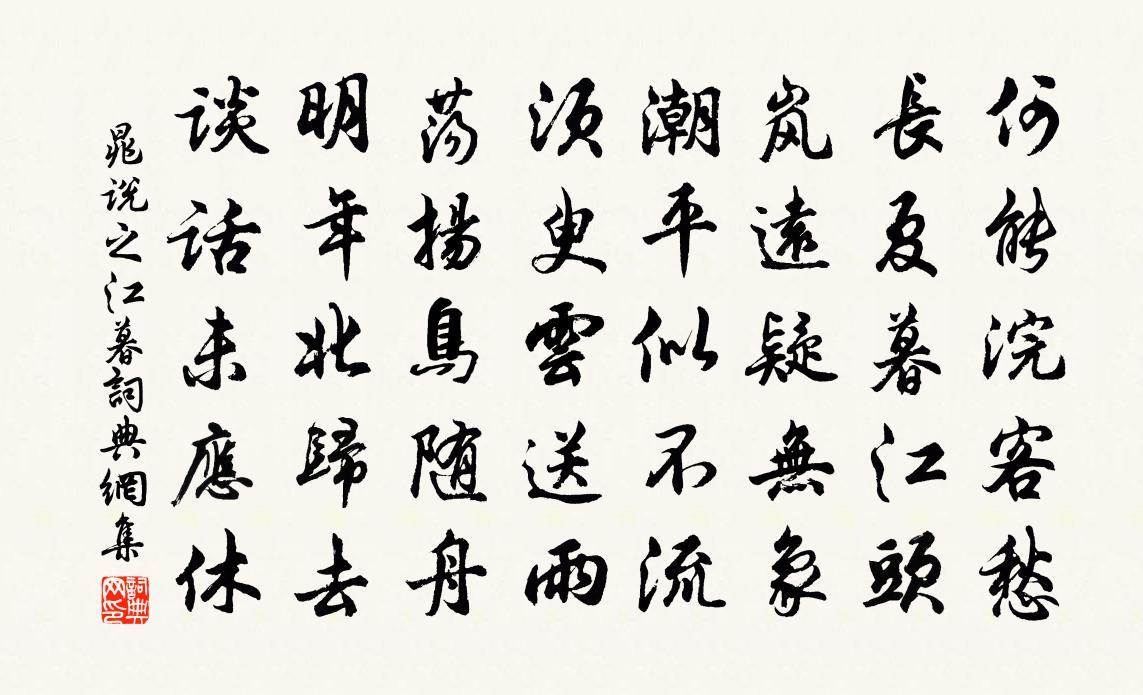 何能浣客愁
長夏暮江頭
岚遠疑無象
潮平似不流
須臾雲送雨
蕩揚鳥随舟
明年北歸去
談話未應休
晁说之江暮詞典網集
詞典网印